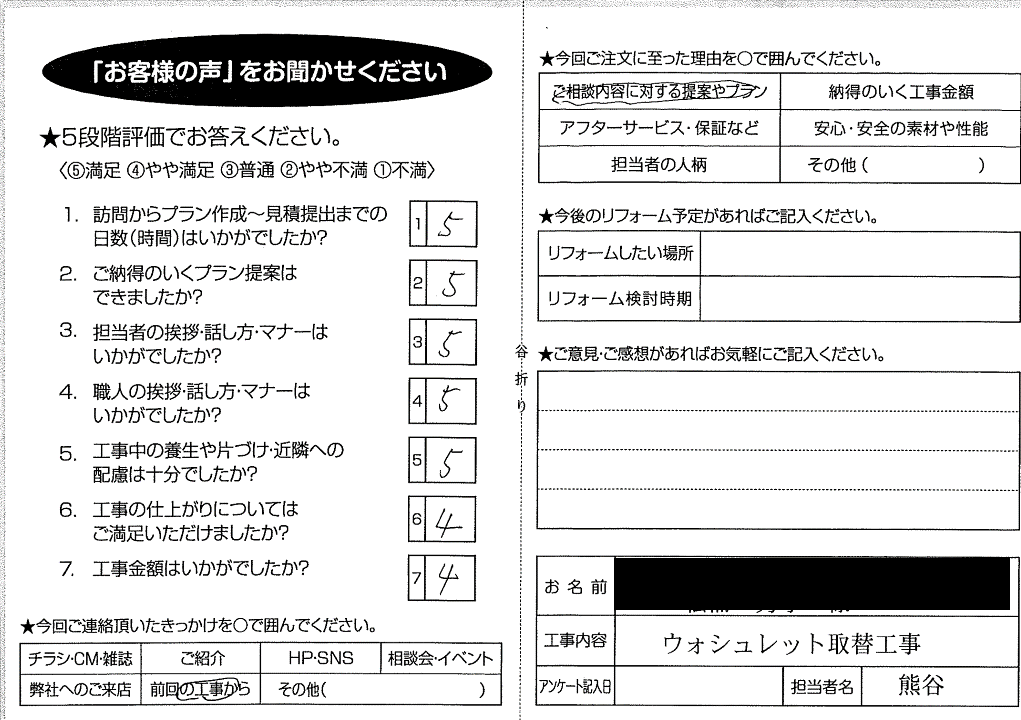 「お客様の声」をお聞かせください
★5段階評価でお答えください。
〈⑤満足 ④やや満足 ③普通 ②やや不満 ①不満〉
1. 訪問からプラン作成〜見積提出までの
日数(時間)はいかがでしたか?
1 5
2. ご納得のいくプラン提案は
できましたか?
2 5
3. 担当者の挨拶・話し方・マナーは
いかがでしたか?
3 5
4. 職人の挨拶・話し方・マナーは
いかがでしたか?
4 5
5. 工事中の養生や片づけ・近隣への
配慮は十分でしたか?
5 5
6. 工事の仕上がりについては
ご満足いただけましたか?
6 4
7. 工事金額はいかがでしたか?
7 4
★今回ご連絡頂いたきっかけを○で囲んでください。
チラシ・CM・雑誌 ご紹介 HP・SNS 相談会・イベント
弊社へのご来店 前回の工事から その他( )
谷折り
★今回ご注文に至った理由を○で囲んでください。
ご相談内容に対する提案やプラン 納得のいく工事金額
アフターサービス・保証など 安心・安全の素材や性能
担当者の人柄 その他( )
★今後のリフォーム予定があればご記入ください。
リフォームしたい場所
リフォーム検討時期
★ご意見・ご感想があればお気軽にご記入ください。
お名前
工事内容 ウォシュレット取替工事
アンケート記入日 担当者名 熊谷